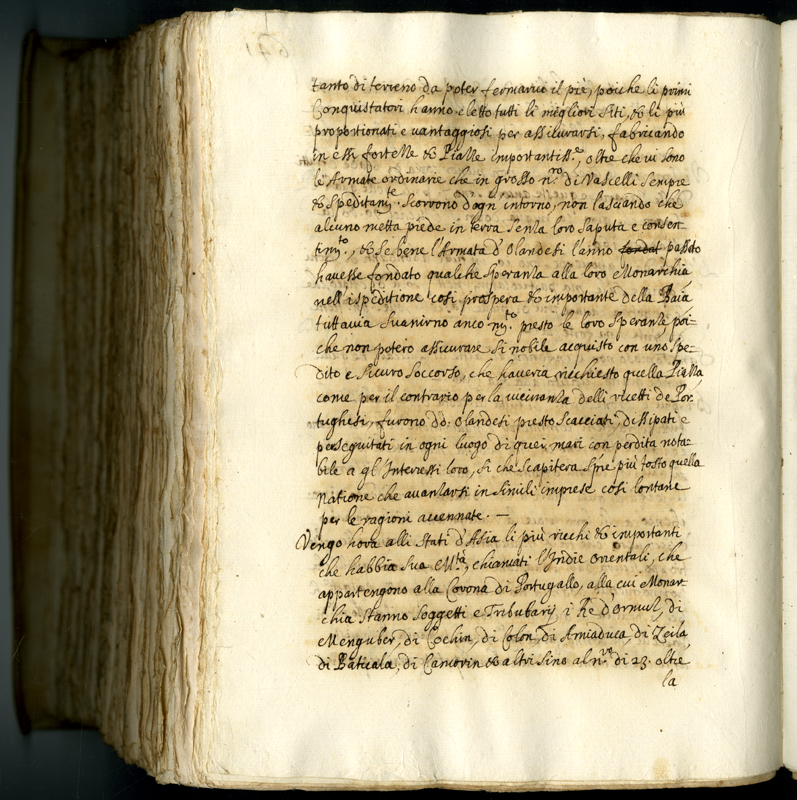 tanto di terreno da poter fermarvi il piè, poiche li primi
Conquistatori hanno eletto tutti li migliori siti, & li più
proportionati e vantaggiosi per assicurarsi, fabricando
in essi fortezze & Piazze importantiss.e, oltre che vi sono
le Armate ordinarie che in grosso n.ro di Vascelli sempre
& speditam.te scorrono d'ogn'intorno, non lasciando che
alcuno metta piede in terra senza loro saputa e consen=
tim.to, & se bene l'Armata d'Olandesi l'anno fondat passato
havesse fondato qualche speranza alla loro Monarchia
nell'ispeditione così prospera & importante della Baia
tuttavia svanirno anco m.to presto le loro speranze, poi=
che non potero assicurare si nobile acquisto con uno spe=
dito e sicuro soccorso, che haveria richiesto quella Piazza
come per il contrario per la vicinanza delli ricetti de Por=
tughesi, furono dd. Olandesi presto scacciati, dissipati e
perseguitati in ogni luogo di quei mari con perdita nota=
bile a gl'Interessi loro, si che scapiterà s̃pre più tosto quella
Natione che avanzarsi in simili imprese così lontane
per le ragioni accennate. —
Vengo hora alli Stati d'Asia li più ricchi & importanti
che habbia sua M.tà, chiamati l'Indie Orientali, che
appartengono alla Corona di Portugallo, alla cui Monar=
chia stanno soggetti e Tributarij i Rè d'Ormuz, di
Menguber, di Cochin, di Colon, di Amiaduca, di Zeila,
di Baticala, di Camorin & altri sino al n.ro di 23. oltre
la